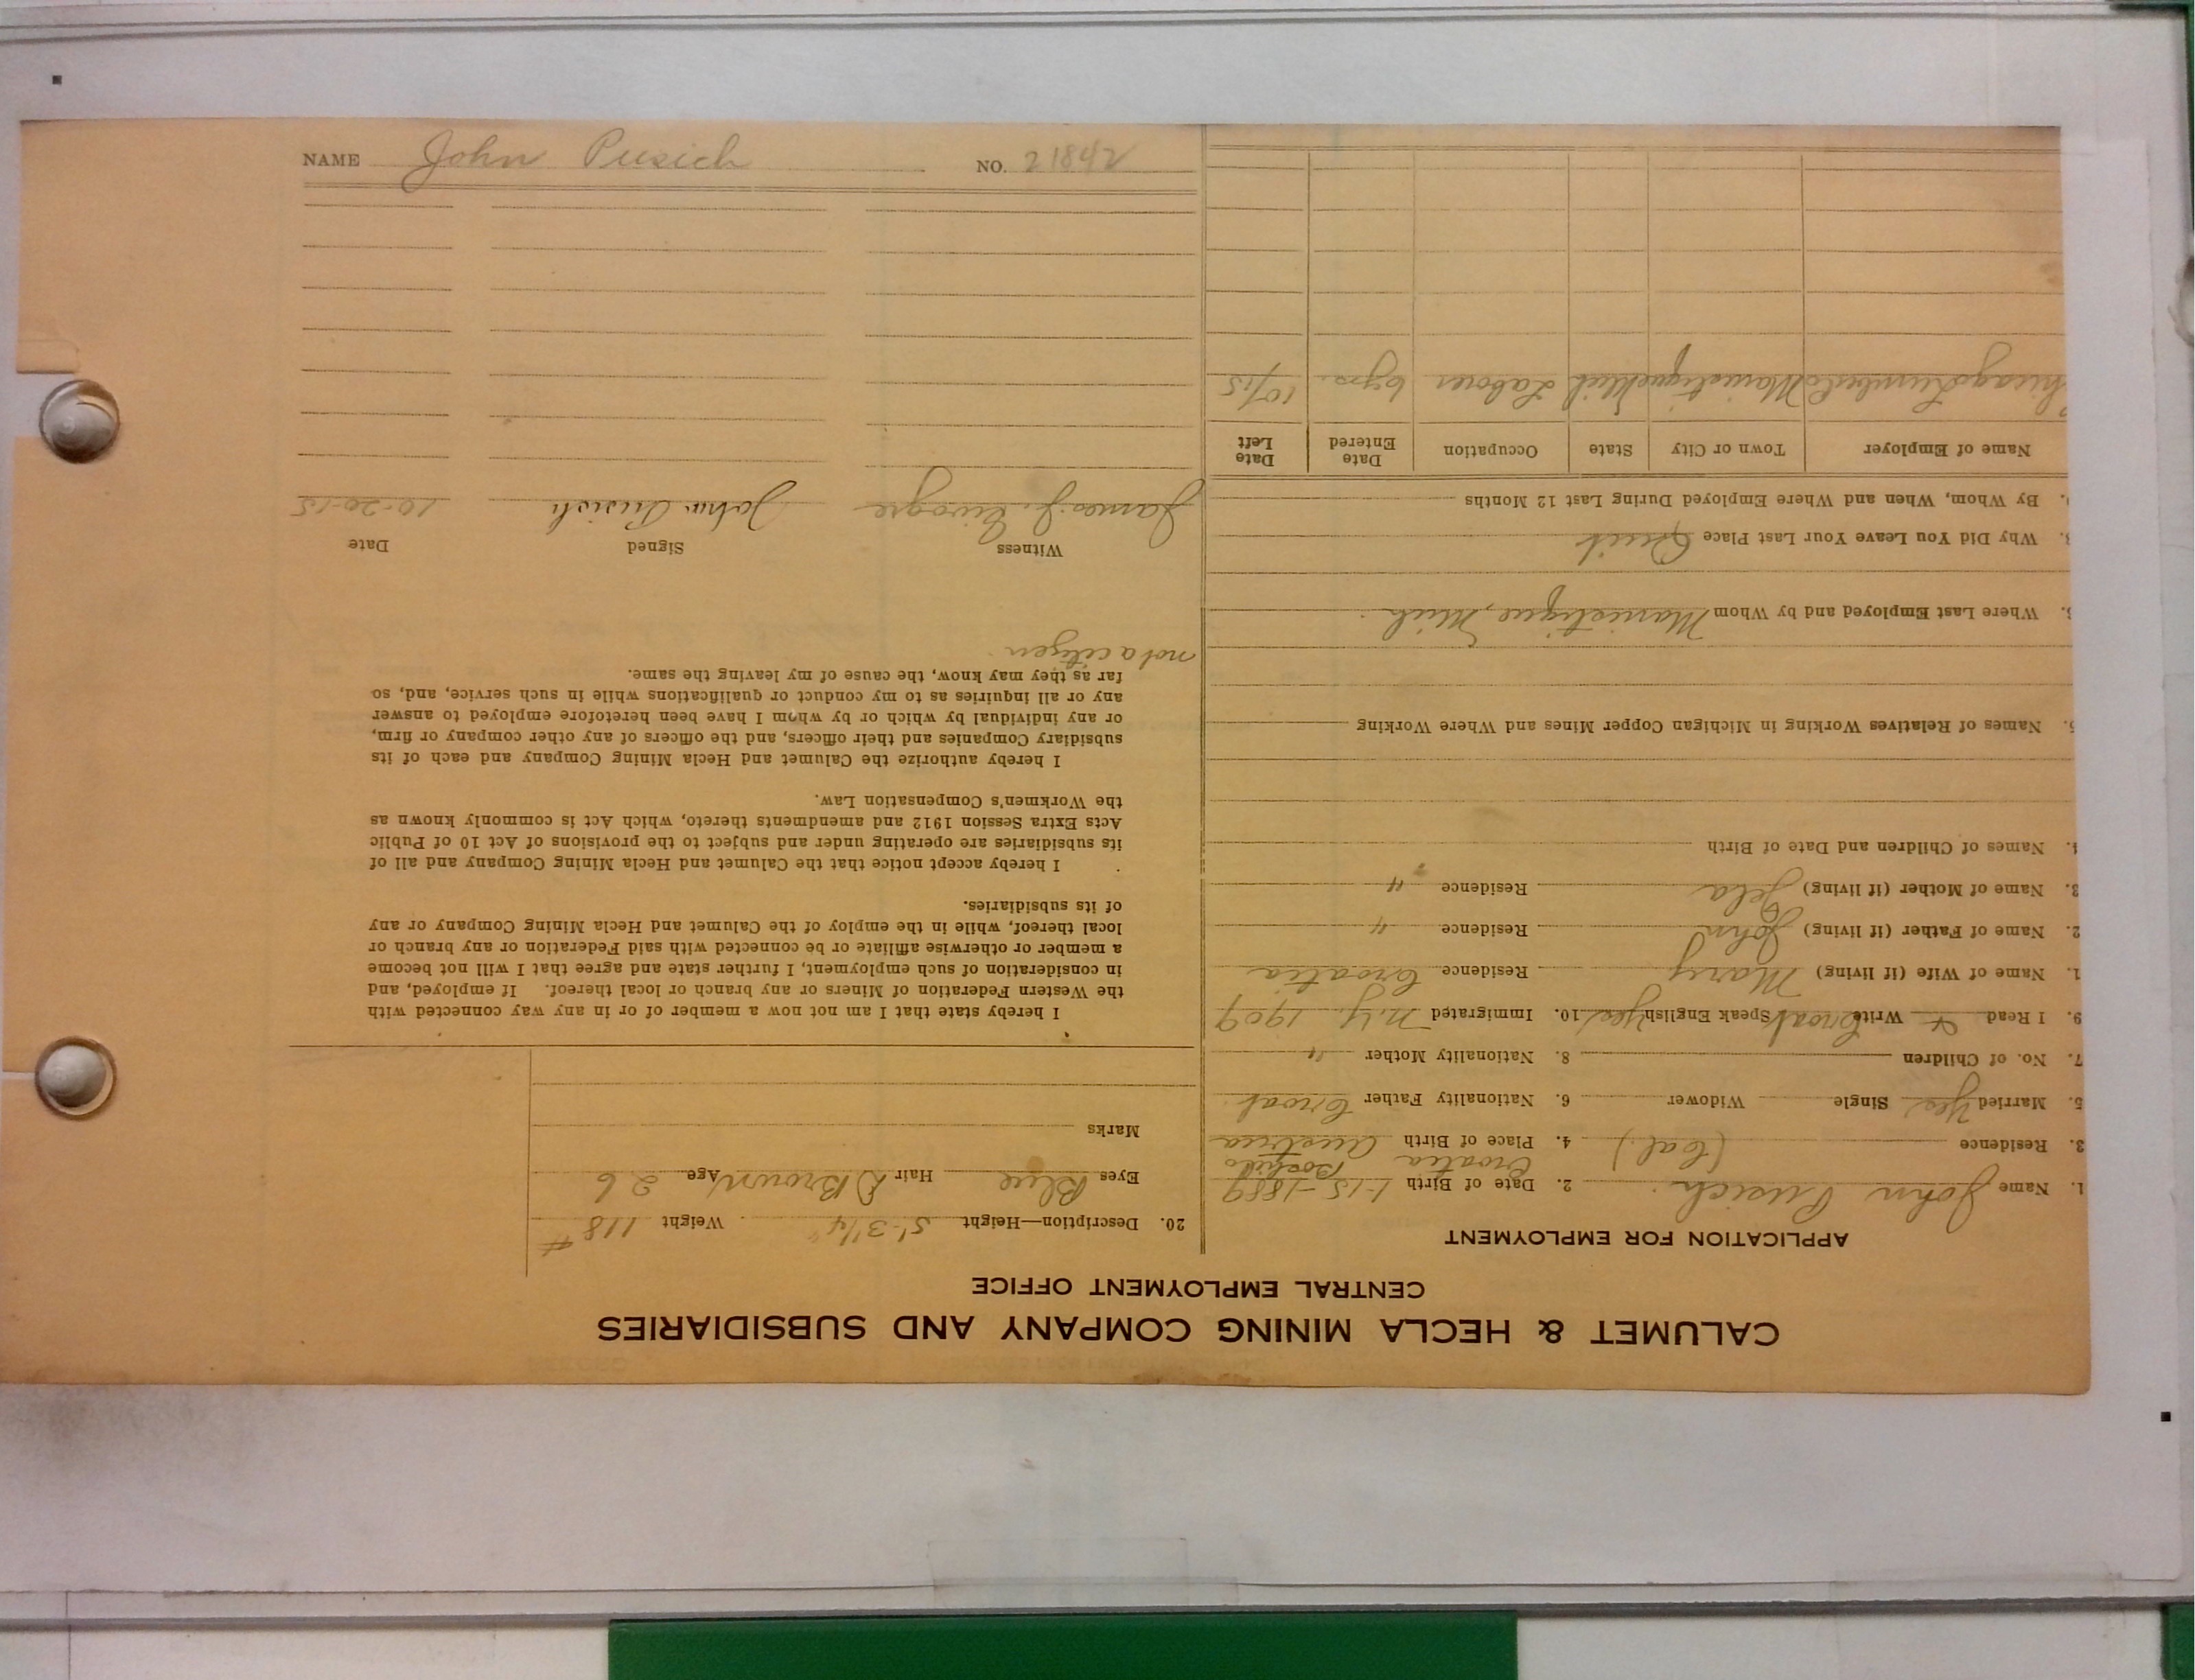 CALUMET & HECLA MINING COMPANY AND SUBSIDIARIES
CENTRAL EMPLOYMENT OFFICE
APPLICATION FOR EMPLOYMENT
1. Name John Pusich 2. Date of Birth 1-15-1889
Croatia
3. Residence (Cal.) 4. Place of Birth Austria
5. Married Yes Single Widower 6. Nationality Father Croat
7. No. of Children 8. Nationality Mother "
9. I Read & Write Croat Speak English Yes 10. Immigrated N.Y. 1909
1. Name of Wife (if living) Mary Residence Croatia
2. Name of Father (if living) John Residence "
3. Name of Mother (if living) Jela Residence "
4. Names of Children and Date of Birth
5. Names of Relatives Working in Michigan Copper Mines and Where Working
Where Last Employed and by Whom Manistique, Mich.
Why Did You Leave Your Last Place Quit
By Whom, When and Where Employed During Last 12 Months
Name of Employer Town or City State Occupation Date Entered Date Left
Chicago Lumber Co Manistique Mich Laborer 6 yrs. 10/15
20. Description—Height 5'-3 1/4" Weight 118 #
Eyes Blue Hair D Brown Age 26
Marks
I hereby state that I am not now a member of or in any way connected with
the Western Federation of Miners or any branch or local thereof. If employed, and
in consideration of such employment, I further state and agree that I will not become
a member or otherwise affiliate or be connected with said Federation or any branch or
local thereof, while in the employ of the Calumet and Hecla Mining Company or any
of its subsidiaries.
I hereby accept notice that the Calumet and Hecla Mining Company and all of
its subsidiaries are operating under and subject to the provisions of Act 10 of Public
Acts Extra Session 1912 and amendments thereto, which Act is commonly known as
the Workmen's Compensation Law.
I hereby authorize the Calumet and Hecla Mining Company and each of its
subsidiary Companies and their officers, and the officers of any other company or firm,
or any individual by which or by whom I have been heretofore employed to answer
any or all inquiries as to my conduct or qualifications while in such service, and, so
far as they may know, the cause of my leaving the same.
not a citizen
Witness Signed Date
James J. John Pusich 10-20-15
NAME John Pusich NO. 21842